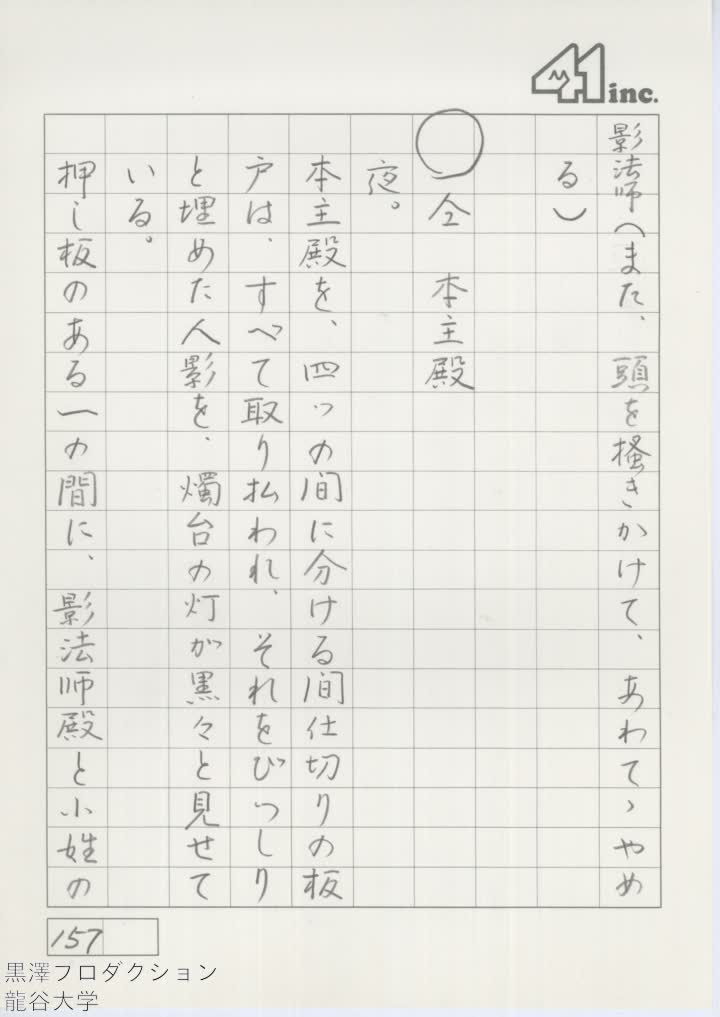 41 inc.
影法師(また、頭を掻きかけて、あわてゝやめ
る)
○仝 本主殿
夜。
本主殿を、四つの間に分ける間仕切りの板
戸は、すべて取り払われ、それをびっしり
と埋めた人影を、燭台の灯が黒々と見せて
いる。
押し板のある一の間に、影法師殿と小姓の
157
黒澤プロダクション
龍谷大学